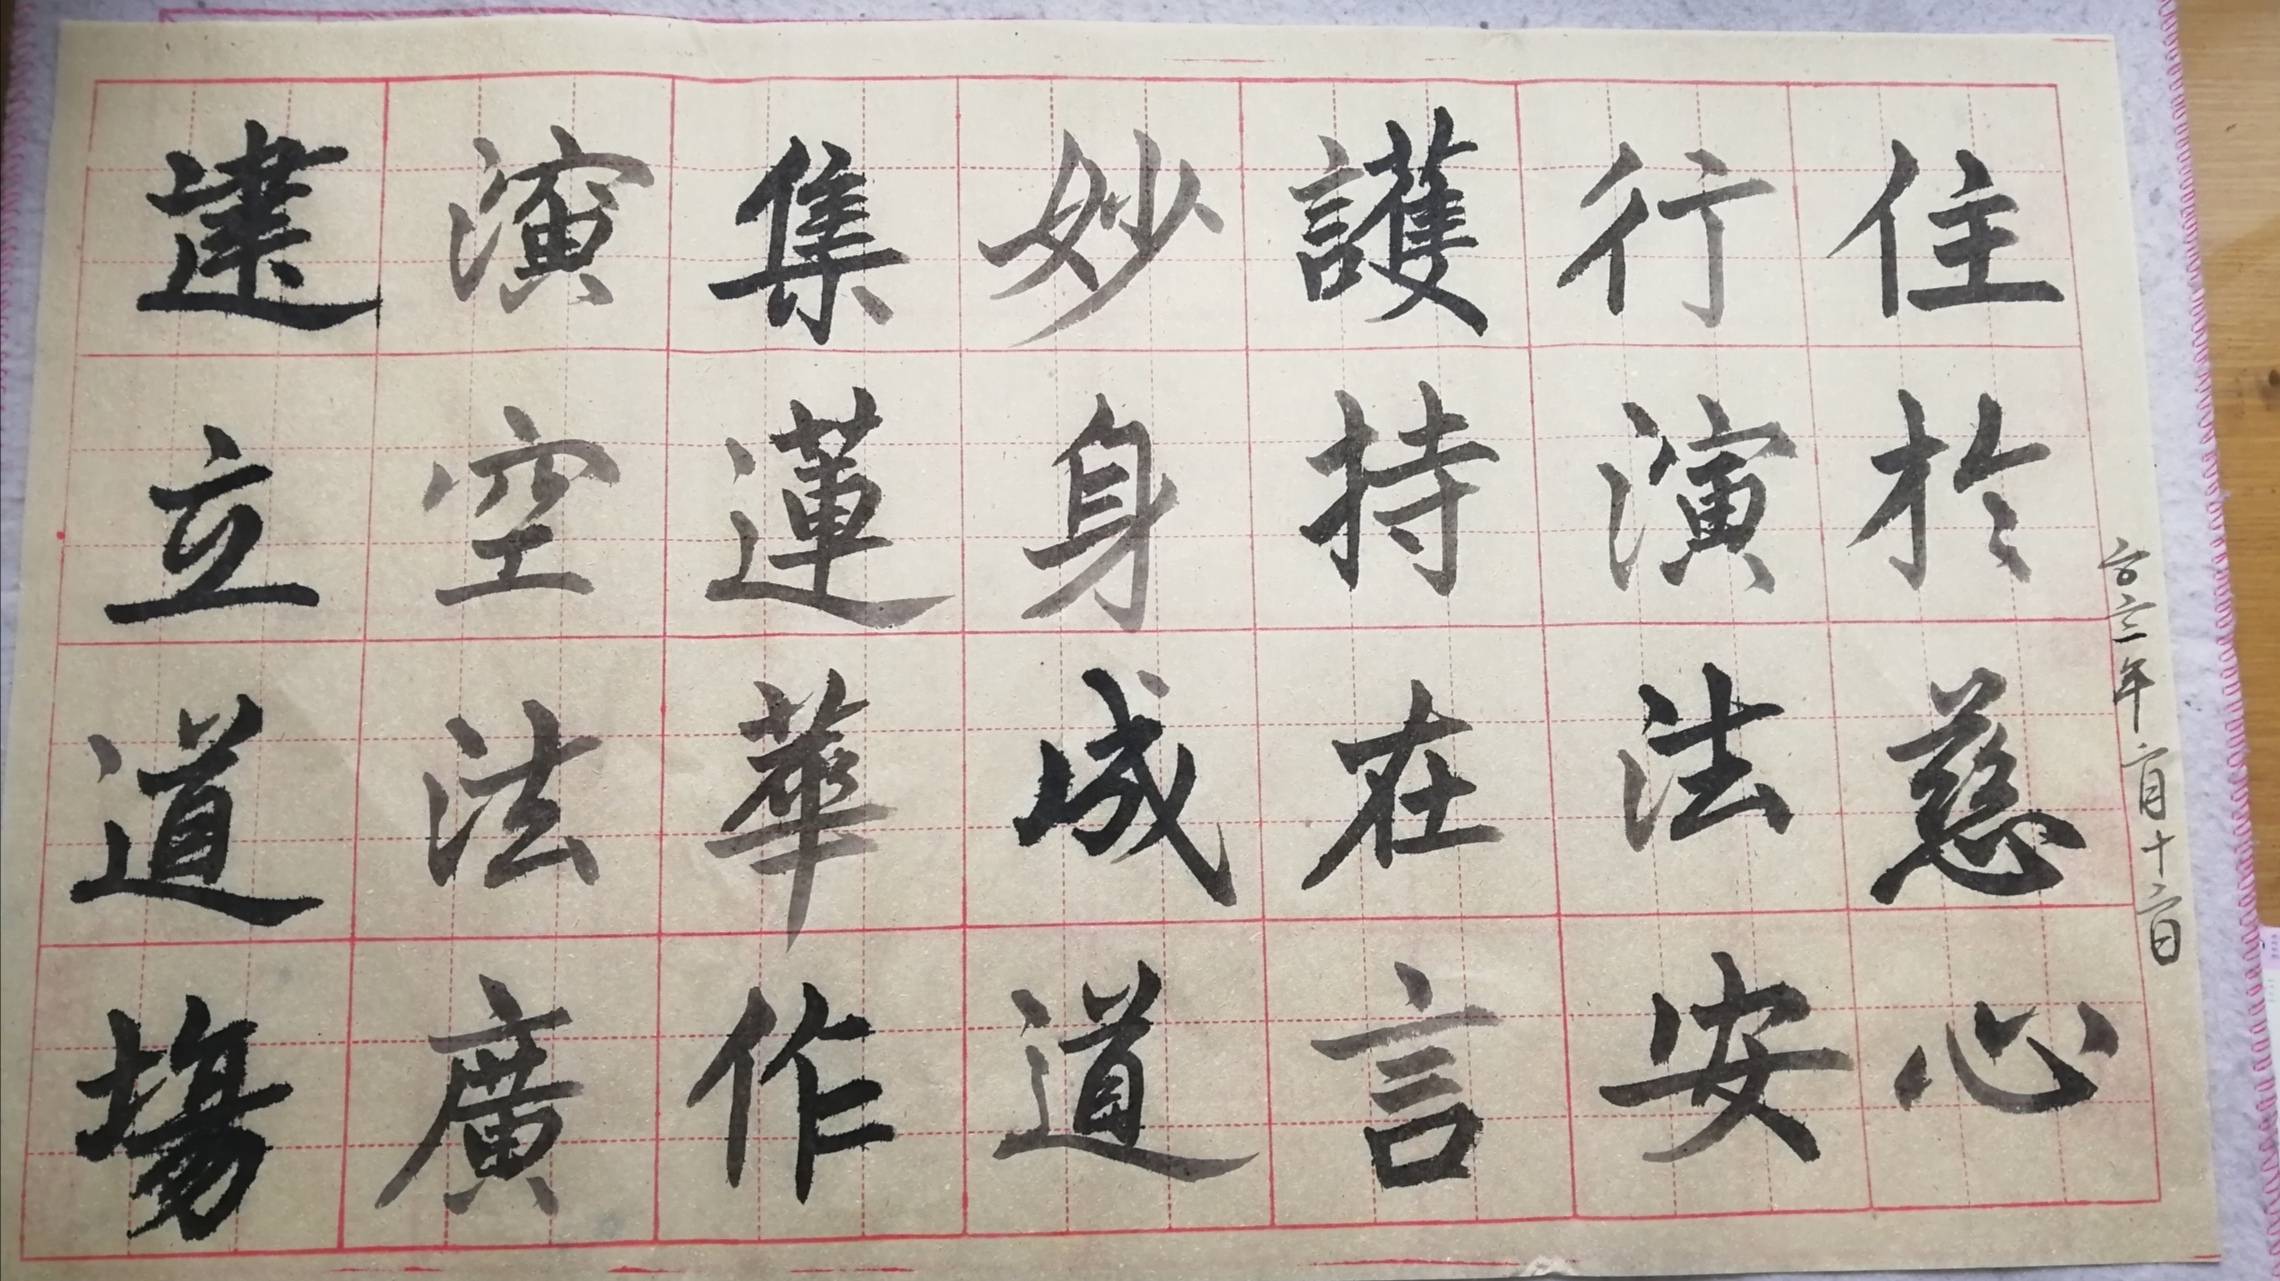 二〇二一年二月十二日
住於慈心
行演法安
護持在言
妙身成道
集蓮華作
演空法廣
建立道場